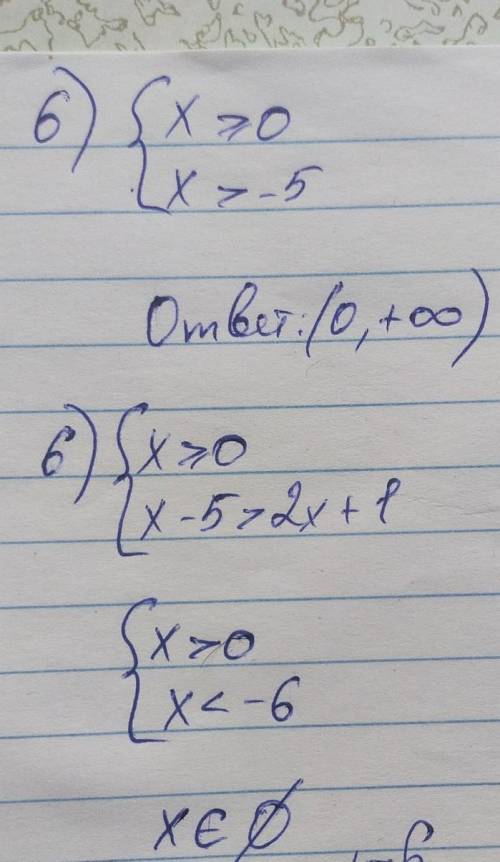 б) { x ⩾ 0
x > -5
Ответ: (0, +∞)
б) { x ⩾ 0
x - 5 > 2x + 1
{ x ⩾ 0
x < -6
x ∈ ∅